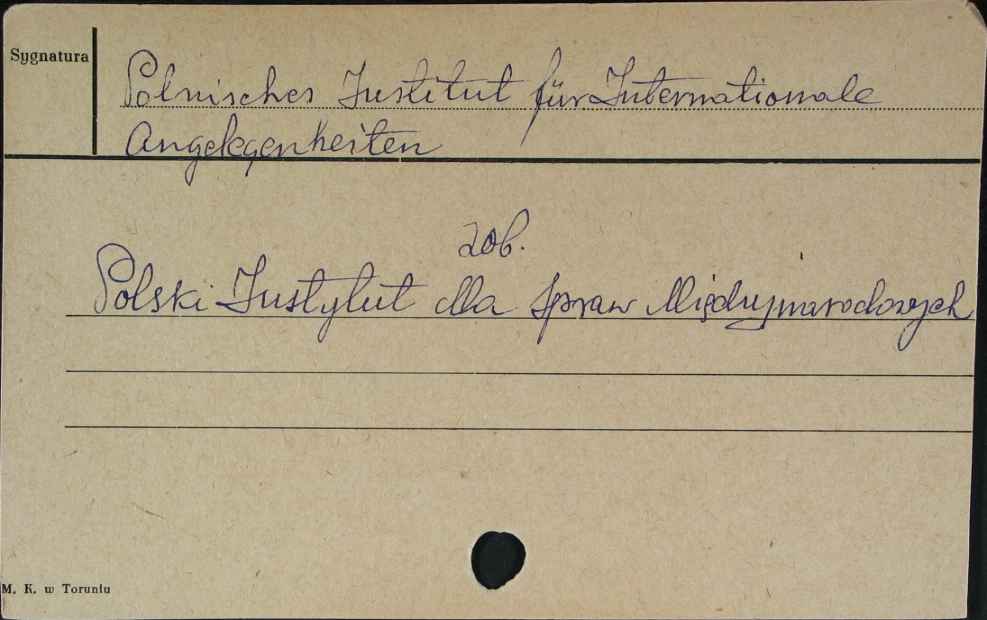 Sygnatura
Polnisches Institut für Internationale
Angelegenheiten
zob.
Polski Instytut dla Spraw Międzynarodowych
M. K. w Toruniu